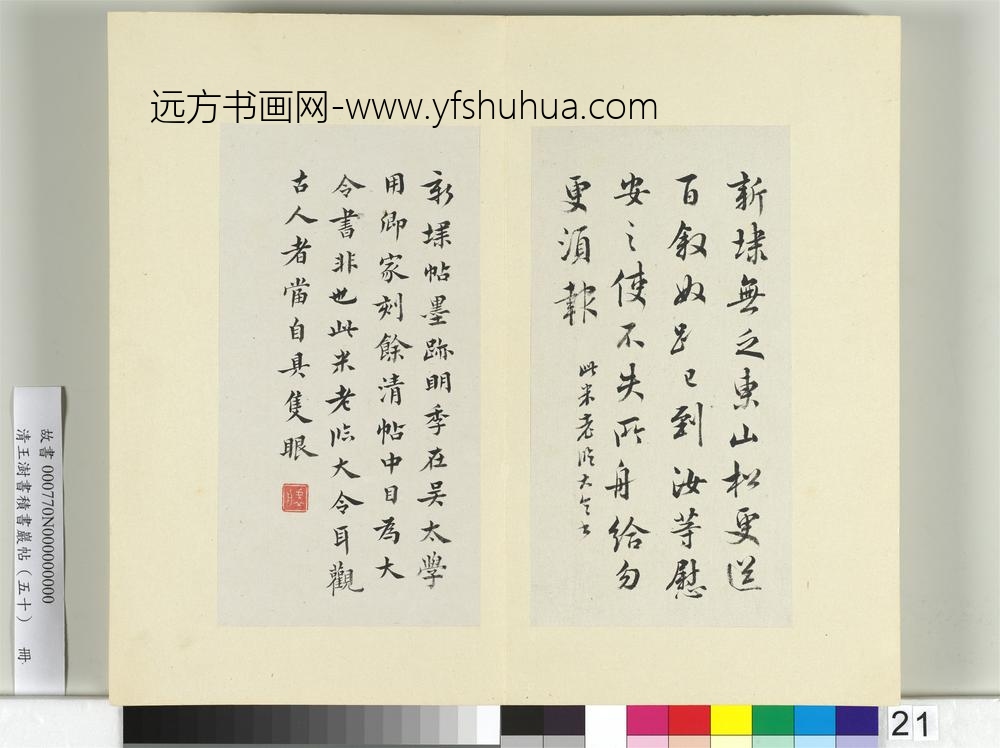 远方书画网-www.yfshuhua.com
新埭無乏東山松更送
百叙奴已到汝等慰
安之使不失所舟給勿
更須報
此米老臨大令書
新埭帖墨跡明季在吴太學
用卿家刻餘清帖中目為大
令書非也此米老臨大令耳觀
古人者當自具隻眼
故書 000770N000000000
清王澍書積書巖帖（五十） 冊
21